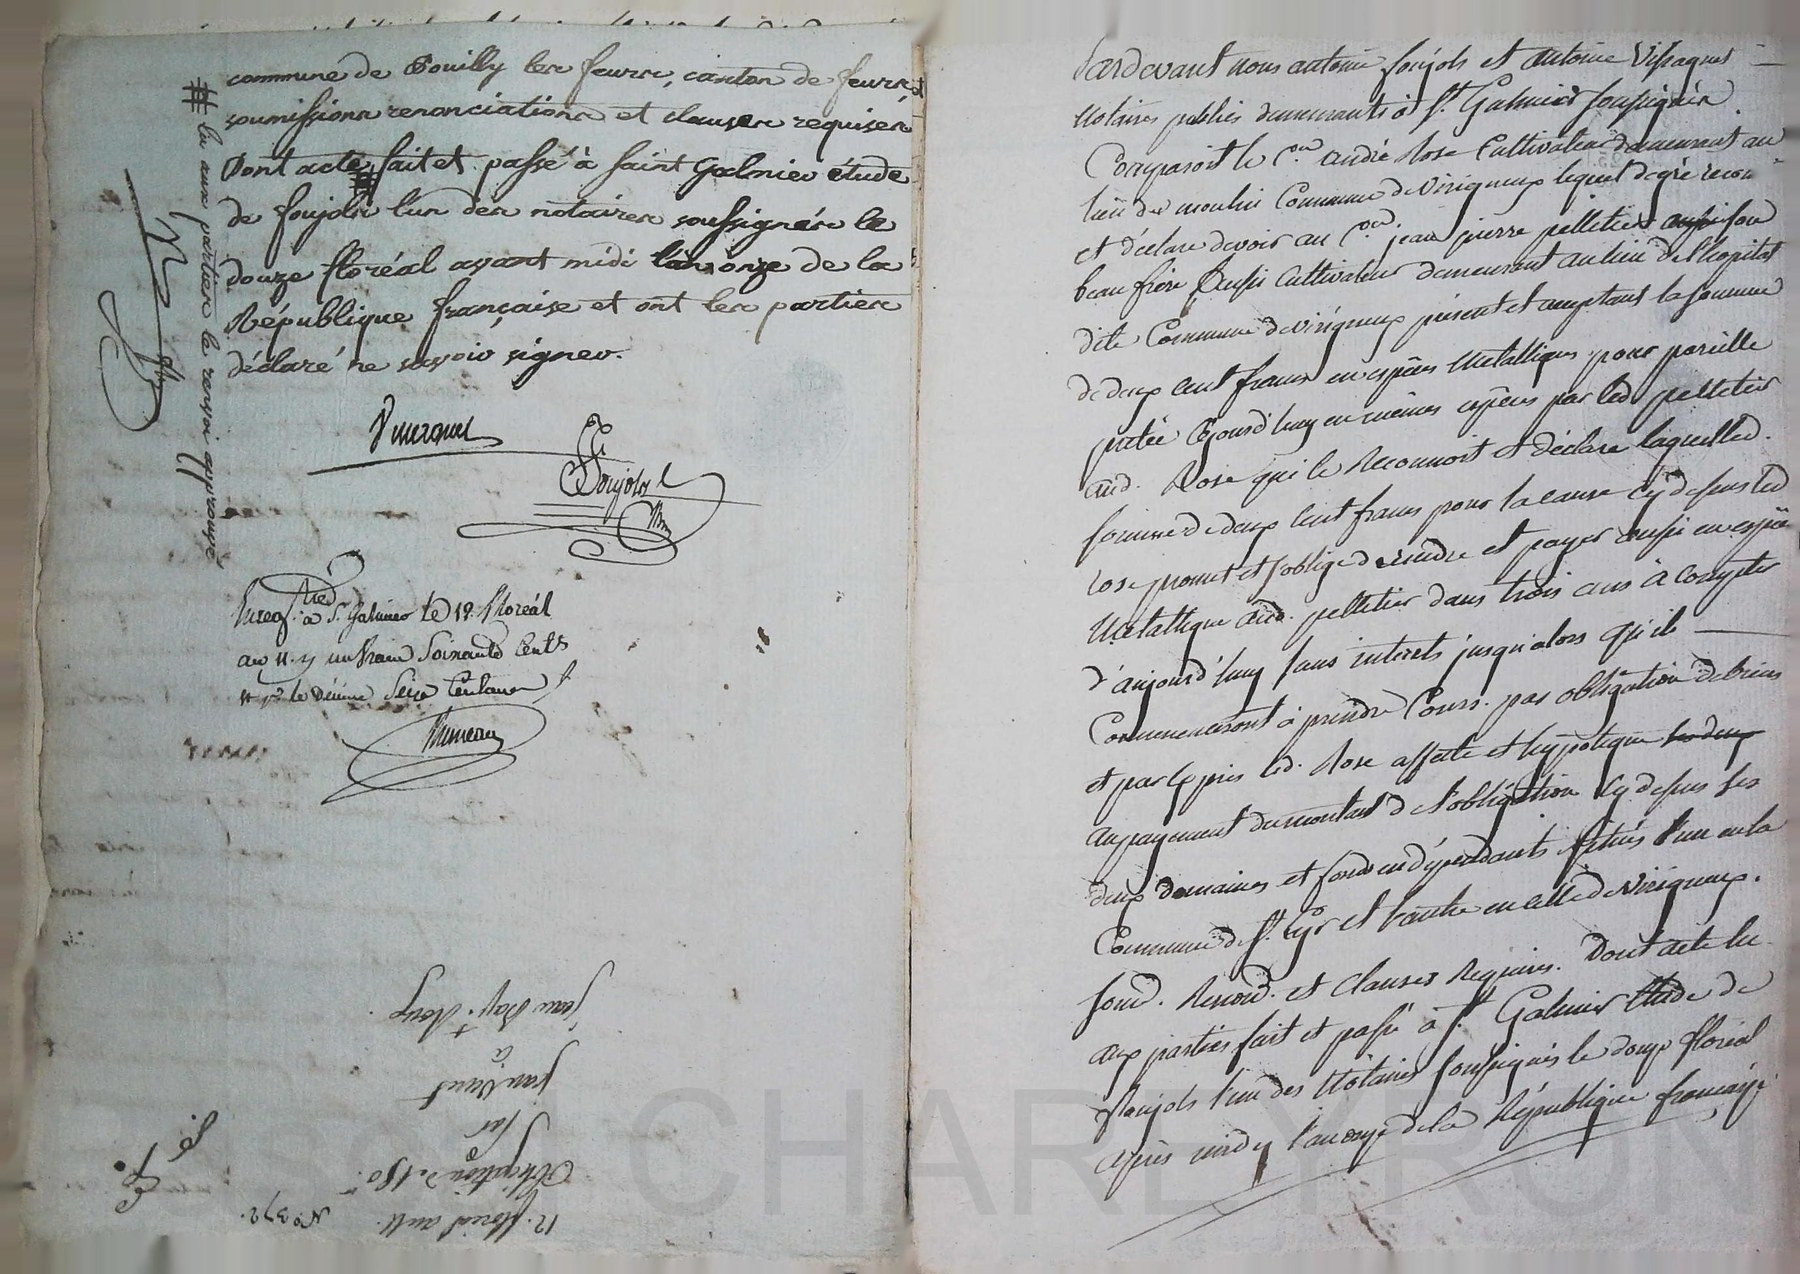 commune de Pouilly les feurs, canton de feurs
soumissions renonciations et clauses requises
Dont acte fait et passé à saint Galmier étude
de foujols l'un des notaires soussignés le
douze floréal avant midi l'an onze de la
République française et ont les parties
déclaré ne savoir signer.
lu aux parties le renvoi approuvé
Foujols
Enreg. à St. Galmier le 19. floréal
an 11. un franc soixante cents
le décime seize centimes
12. floréal an 11. N° 372.
Obligation de 180
Par
jean
à
jean Bap.
Pardevant nous antoine foujols et antoine
Notaires publics demeurants à St. Galmier soussignés
Comparoit le C.en andré Rose Cultivateur demeurant au
lieu des moulin Commune de virigneux lequel de gré recon
et déclare devoir au C.en jean pierre pelletier son
beau frère aussi Cultivateur demeurant au lieu de l'hopital
dite Commune de virigneux présent et acceptant la somme
de deux cent francs en espèces metalliques pour pareille
pretée cejourd'huy en mêmes espèces par led. pelletier
aud. Rose qui le Reconnoit et déclare laquelle d.
somme de deux cent francs pour la cause cy dessus led
rose promet et s'oblige de rendre et payer aussi en espèce
Metallique aud. pelletier dans trois ans à compter
d'aujourd'huy sans interets jusqu'alors qu'ils
Commenceront à prendre Cours. par obligation de biens
et par exprès led. Rose affecte et hypoteque les deux
au payement du montant de l'obligation cy dessus ses
deux domaines et fonds en dépendants situés l'un en la
Commune de St. Cyr et l'autre en celle de virigneux.
soum. Renon. et Clauses Requises. Dont acte lu
aux parties fait et passé à St. Galmier étude de
foujols l'un des Notaires soussignés le douze floréal
après midy l'an onze de la République française
CHAREYRON